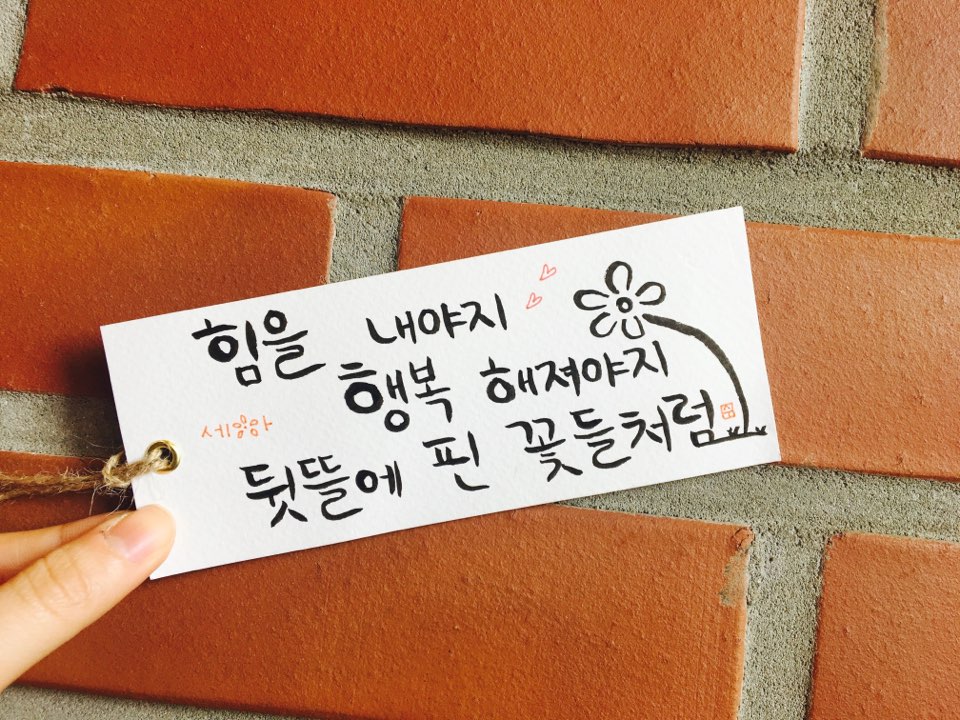 힘을 내야지
행복 해져야지
뒷뜰에 핀 꽃들처럼